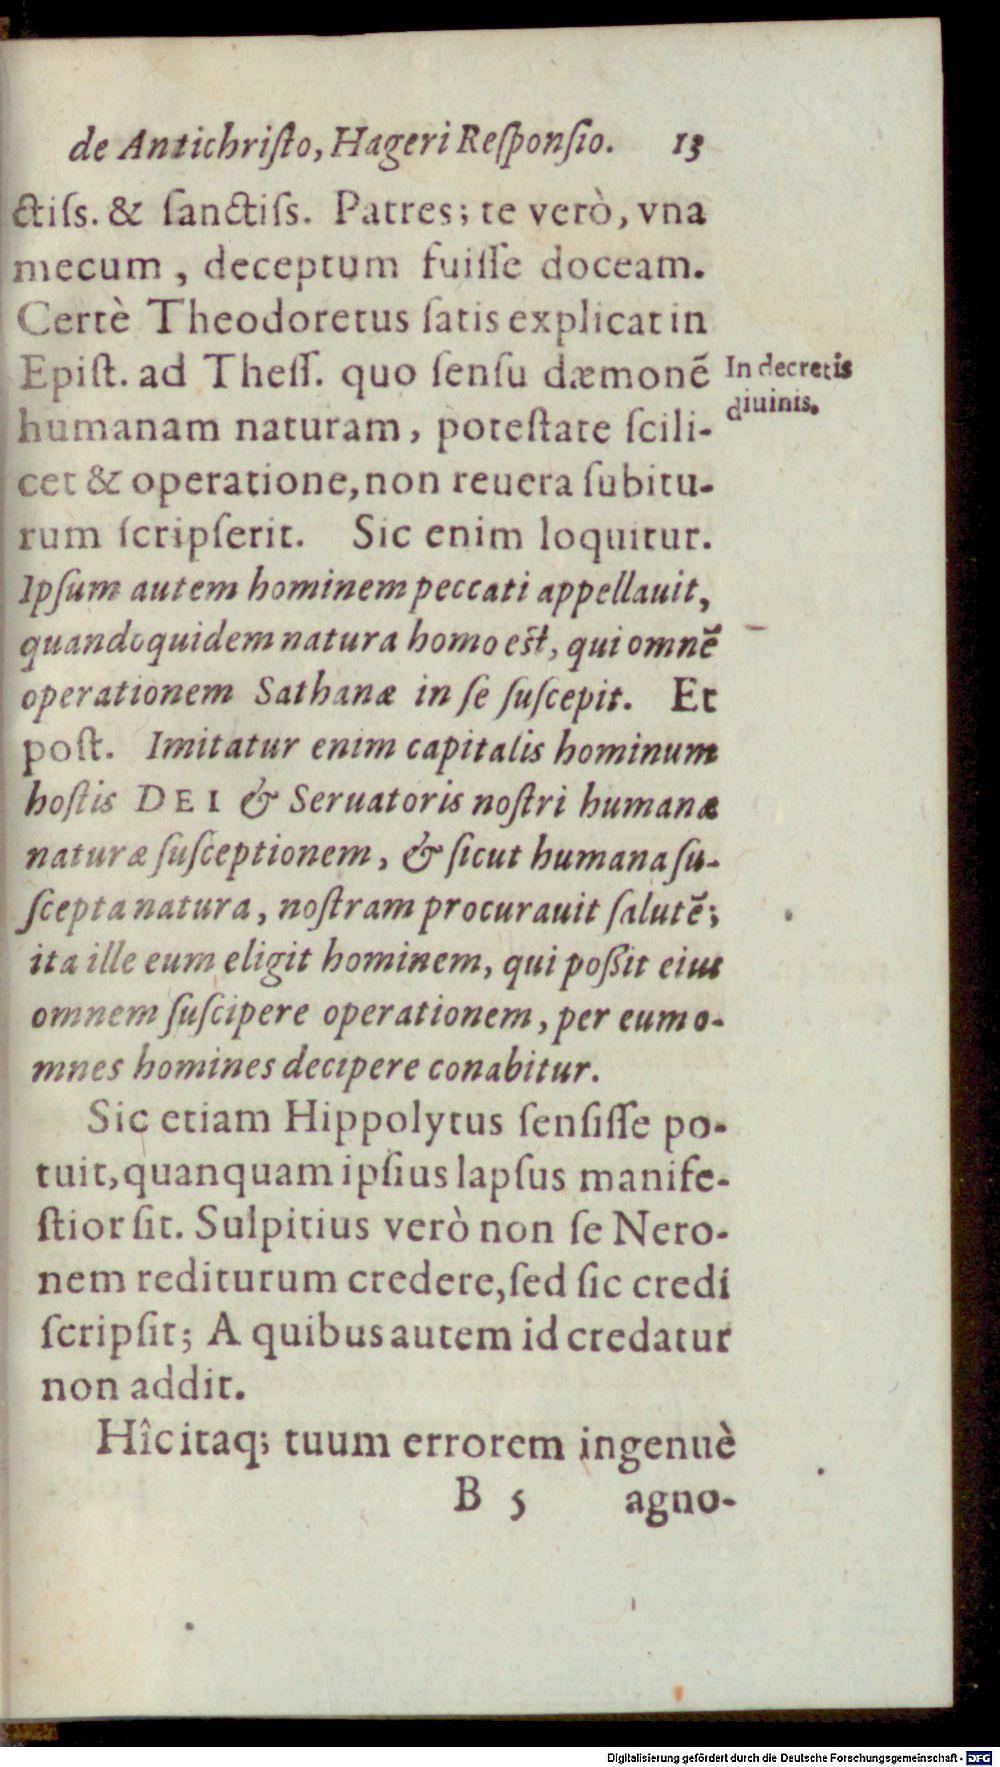 de Antichriſto, Hageri Reſponſio. 13
ctiſs. & ſanctiſs. Patres; te verò, vna
mecum, deceptum fuiſſe doceam.
Certè Theodoretus ſatis explicat in
Epiſt. ad Theſſ. quo ſenſu dæmonē
In decretis
diuinis.
humanam naturam, poteſtate ſcili-
cet & operatione, non reuera ſubitu-
rum ſcripſerit. Sic enim loquitur.
Ipſum autem hominem peccati appellauit,
quandoquidem natura homo eſt, qui omnē
operationem Sathanæ in ſe ſuſcepit. Et
poſt. Imitatur enim capitalis hominum
hoſtis DEI & Seruatoris noſtri humanæ
naturæ ſuſceptionem, & ſicut humana ſu-
ſcepta natura, noſtram procurauit ſalutē;
ita ille eum eligit hominem, qui poßit eius
omnem ſuſcipere operationem, per eum o-
mnes homines decipere conabitur.
Sic etiam Hippolytus ſenſiſſe po-
tuit, quanquam ipſius lapſus manife-
ſtior ſit. Sulpitius verò non ſe Nero-
nem rediturum credere, ſed ſic credi
ſcripſit; A quibus autem id credatur
non addit.
Hîc itaq; tuum errorem ingenuè
B 5 agno-
Digitalisierung gefördert durch die Deutsche Forschungsgemeinschaft - DFG